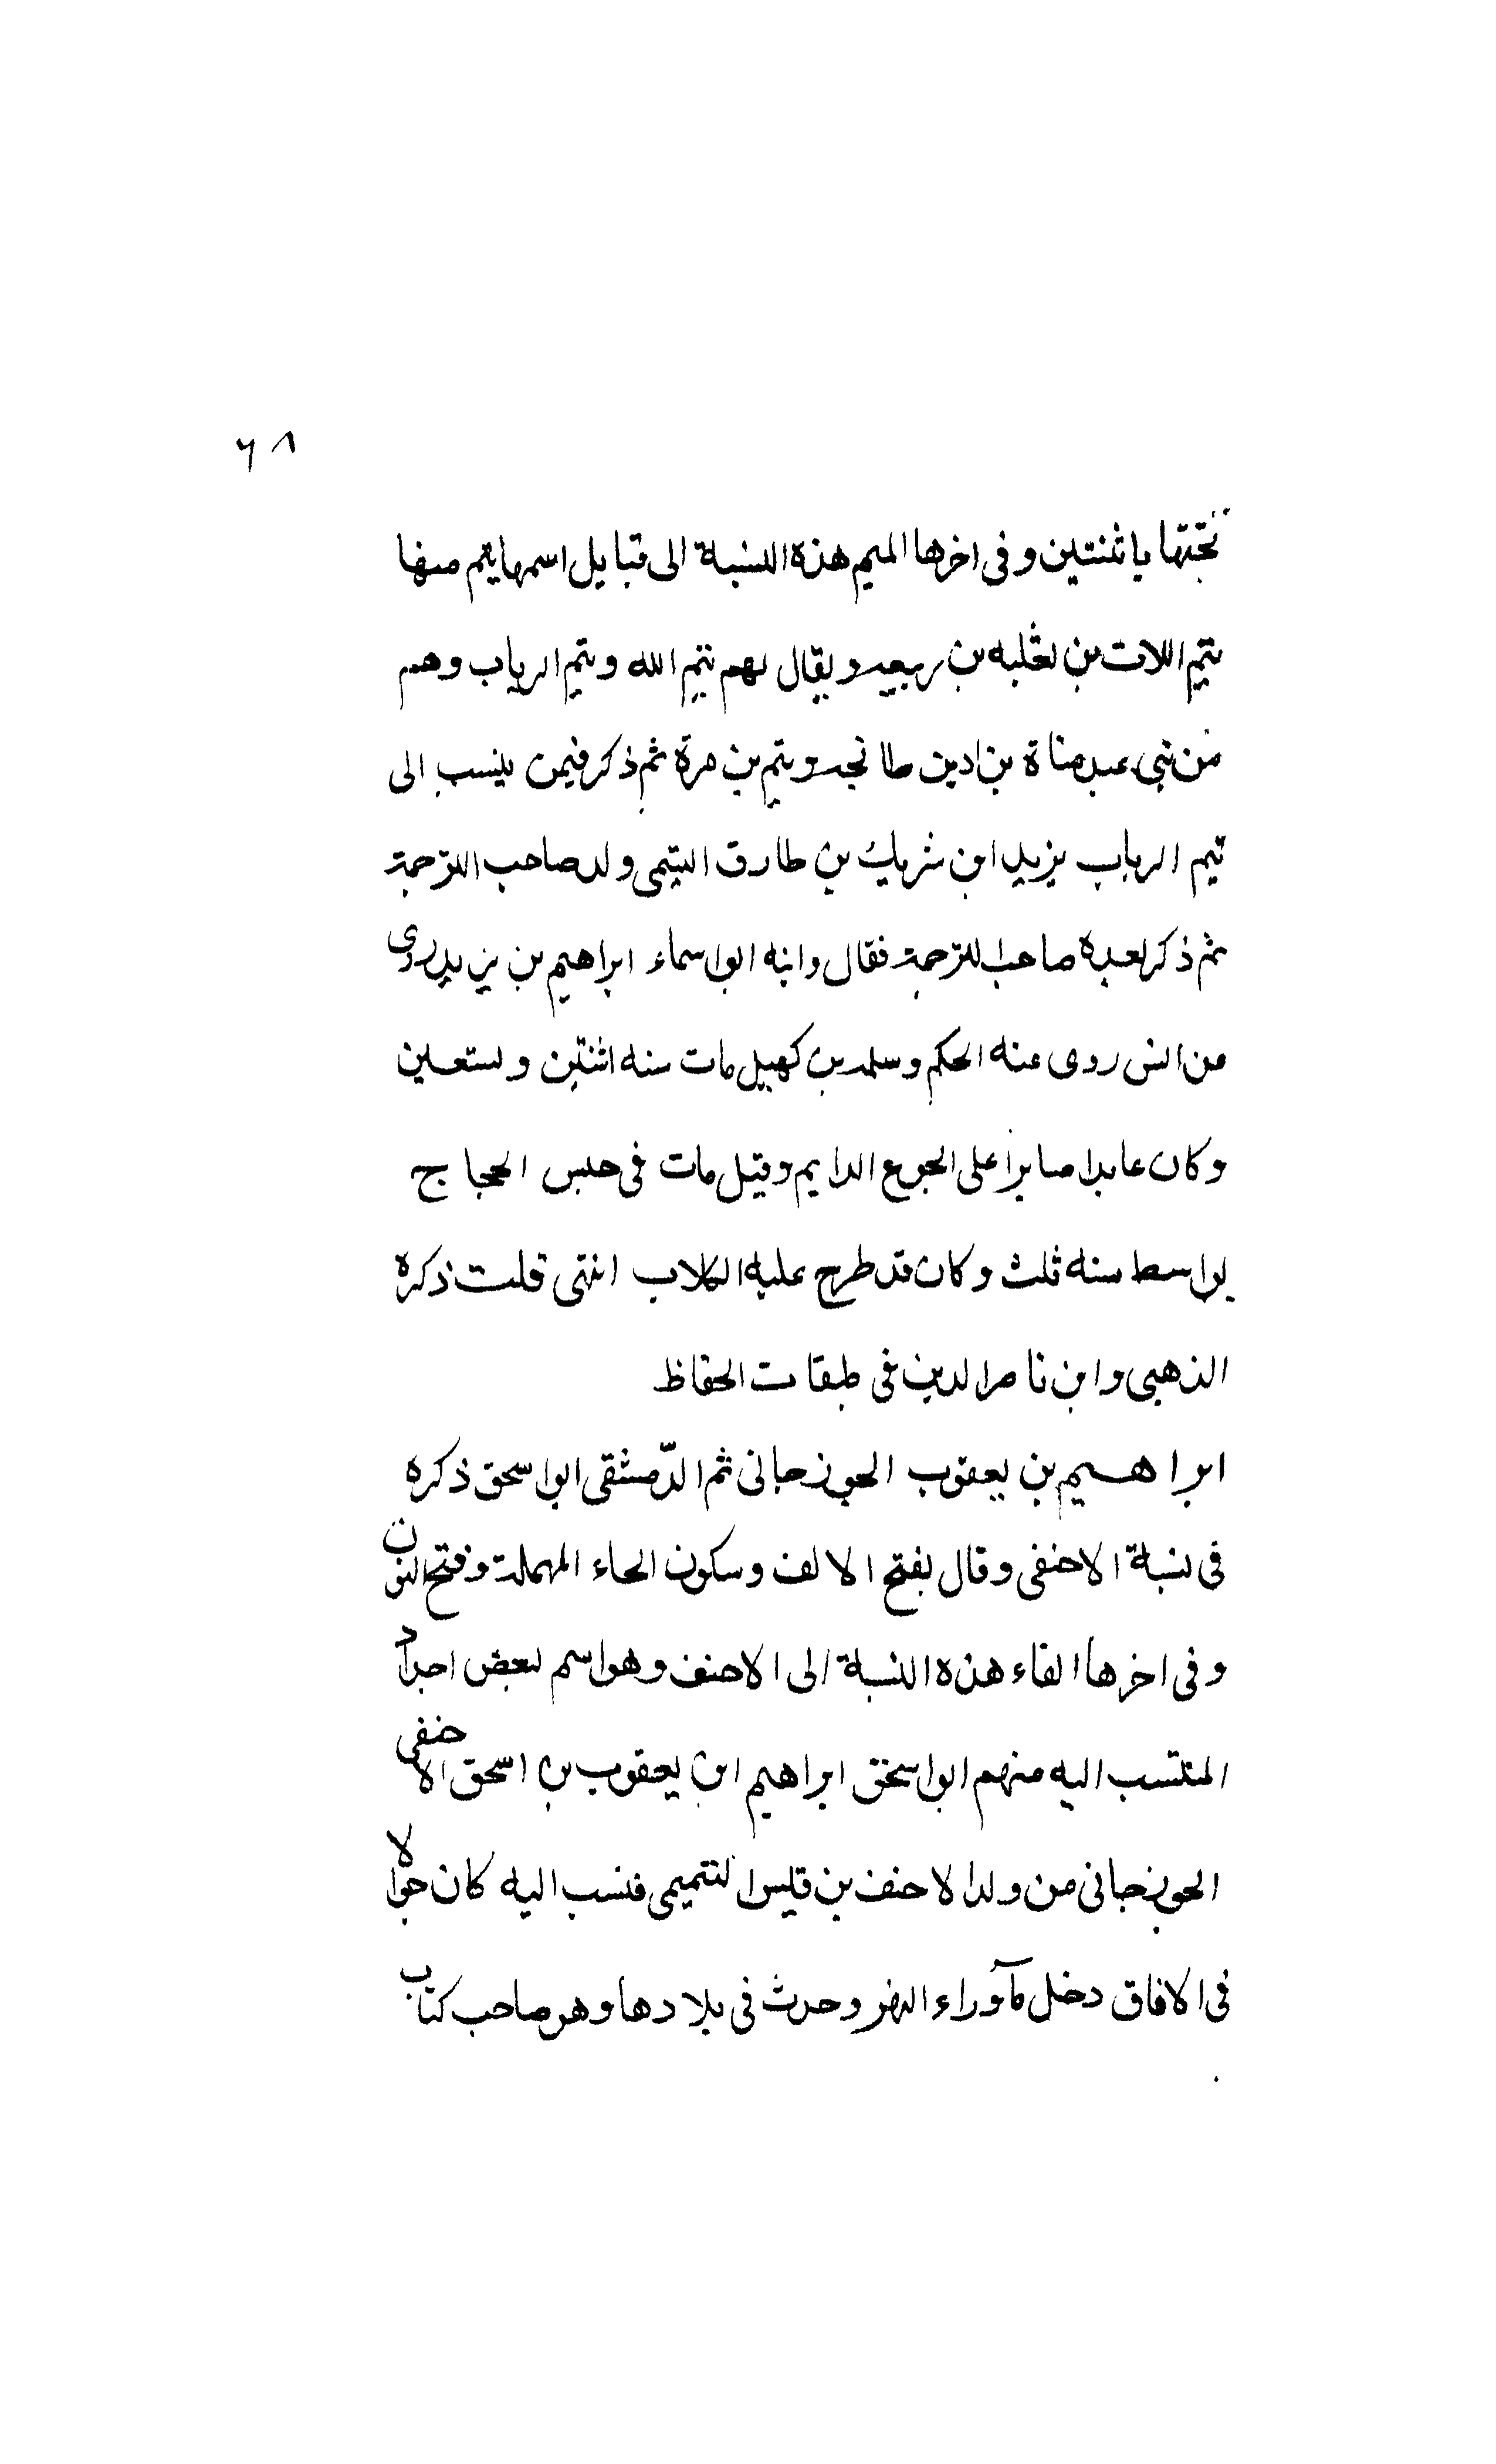 ٦٨
تحتها باثنتين وفى اخرها الميم هذه النسبة الى قبايل اسمها تيم منها
تيم اللات بن ثعلبه بن ربيعه ويقال لهم تيم الله وتيم الرباب وهم
من بنى عبد مناة بن اد بن طابخه وتيم بن مرة ثم ذكر فيمن ينسب الى
تيم الرباب يزيد ابن شريك بن طارق التيمى والد صاحب الترجمة
ثم ذكر بعده صاحب الترجمة فقال وابنه ابو اسماء ابراهيم بن يزيد روى
من انس روى عنه الحكم وسلمه بن كهيل مات سنه اثنتين وتسعين
وكان عابدا صابرا على الجوع الدايم وقيل مات فى حبس الحجاج
بواسط سنه ثلث وكان قد طرح عليه الكلاب انتهى قلت ذكره
الذهبى وابن ناصر الدين فى طبقات الحفاظ
ابراهيم بن يعقوب الجوزجانى ثم الدّمشقى ابو اسحق ذكره
فى نسبة الاحنفى وقال بفتح الالف وسكون الحاء المهملة وفتح النون
وفى اخرها الفاء هذه النسبة الى الاحنف وهو اسم لبعض اجداد
المنتسب اليه منهم ابو اسحق ابراهيم ابن يعقوب بن اسحق الاحنفى
الجوزجانى من ولد الاحنف بن قيس التميمى فنسب اليه كان جوالا
فى الافاق دخل ماوراء النهر وحدث فى بلادها وهو صاحب كتاب